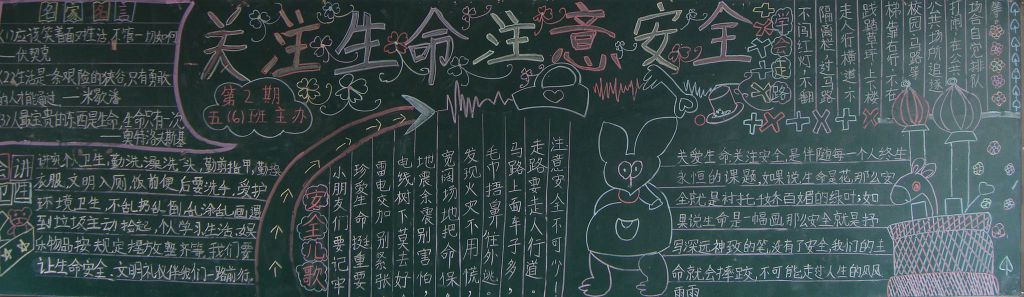 关注生命 注意安全
第2期
五(6)班主办
名家名言
(1)应该笑着面对生活,不管一切如何
—伏契克
(2)生活是一条艰险的狭谷,只有勇敢
的人才能通过 —米歇潘
(3)人最宝贵的东西是生命,生命属于人只有一次
—奥斯特洛夫斯基
讲究个人卫生,勤洗澡洗头,勤剪指甲,勤换
衣服,文明入厕,饭前便后要洗手,爱护
环境卫生,不乱扔乱倒乱涂乱画,遇
到垃圾主动拾起,个人学习生活
物品按规定摆放整齐等,我们要
让生命安全,文明礼仪伴我们一路前行。
安全儿歌
注意安全不可少!
走路要走人行道。
马路上面车子多,
毛巾捂鼻往外逃。
发现火灾不用慌,
宽阔场地把命保。
地震杀震别害怕,
电线树下莫去好
雷电交加别紧张
珍爱生命挺重要
小朋友们要记牢
关爱生命关注安全,是伴随每一个人终生
永恒的课题,如果说生命是花,那么安
全就是衬托娇百媚的绿叶;如
果说生命是一幅画,那么安全就是抒
写深远神致的笔,没有了安全,我们的生
命就会摔跤,不可能走过人生的风风
雨雨
不闯红灯,不翻
隔离栏,过马路
走人行横道,不
践踏草坪,上下楼
梯靠右行,不在
校园、马路等
公共场所追逐
打闹,在公共
场合自觉排队
等。